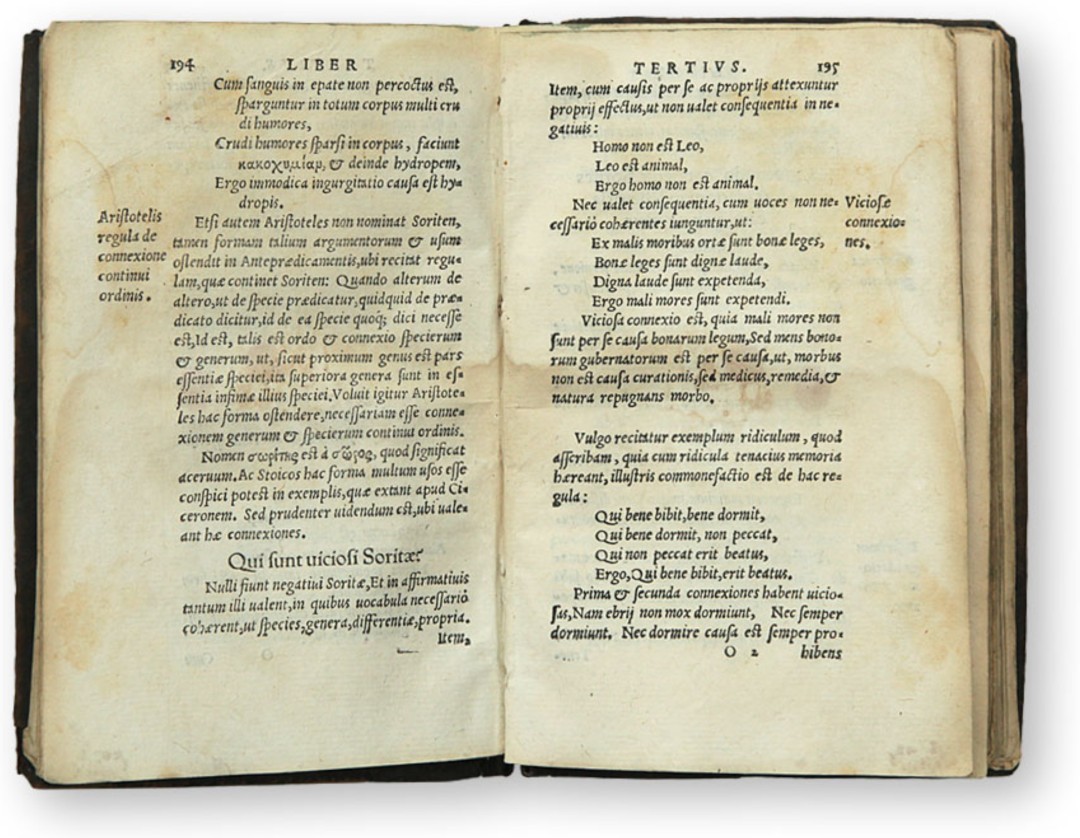 194 LIBER
Cum sanguis in epate non percoctus est,
sparguntur in totum corpus multi cru
di humores,
Crudi humores sparsi in corpus, faciunt
κακοχυμίαμ, & deinde hydropem,
Ergo immodica ingurgitatio causa est hy⸗
dropis.
Aristotelis
regula de
connexione
continui
ordinis.
Etsi autem Aristoteles non nominat Soriten,
tamen formam talium argumentorum & usum
ostendit in Anteprædicamentis, ubi recitat regu⸗
lam, quæ continet Soriten: Quando alterum de
altero, ut de specie prædicatur, quidquid de præ⸗
dicato dicitur, id de ea specie quoq; dici necesse
est, Id est, talis est ordo & connexio specierum
& generum, ut, sicut proximum genus est pars
essentiæ speciei, ita superiora genera sunt in es⸗
sentia infimæ illius speciei. Voluit igitur Aristote⸗
les hac forma ostendere, necessariam esse conne⸗
xionem generum & specierum continui ordinis.
Nomen σωρίτης est à σῶρος, quod significat
aceruum. Ac Stoicos hac forma multum usos esse
conspici potest in exemplis, quæ extant apud Ci⸗
ceronem. Sed prudenter uidendum est, ubi uale⸗
ant hæ connexiones.
Qui sunt uiciosi Soritæ?
Nulli fiunt negatiui Soritæ, Et in affirmatiuis
tantum illi ualent, in quibus uocabula necessariò
cohærent, ut species, genera, differentiæ, propria.
Item,
TERTIVS. 195
Item, cum causis per se ac proprijs attexuntur
proprij effectus, ut non ualet consequentia in ne⸗
gatiuis:
Homo non est Leo,
Leo est animal,
Ergo homo non est animal.
Nec ualet consequentia, cum uoces non ne⸗
cessariò cohærentes iunguntur, ut:
Viciosæ
connexio⸗
nes.
Ex malis moribus ortæ sunt bonæ leges,
Bonæ leges sunt dignæ laude,
Digna laude sunt expetenda,
Ergo mali mores sunt expetendi.
Viciosa connexio est, quia mali mores non
sunt per se causa bonarum legum, Sed mens bono⸗
rum gubernatorum est per se causa, ut, morbus
non est causa curationis, sed medicus, remedia, &
natura repugnans morbo.
Vulgo recitatur exemplum ridiculum, quod
asscribam, quia cum ridicula tenacius memoria
hæreant, illustris commonefactio est de hac re⸗
gula:
Qui bene bibit, bene dormit,
Qui bene dormit, non peccat,
Qui non peccat erit beatus,
Ergo, Qui bene bibit, erit beatus.
Prima & secunda connexiones habent uicio⸗
sas, Nam ebrij non mox dormiunt, Nec semper
dormiunt. Nec dormire causa est semper pro⸗
O 2 hibens